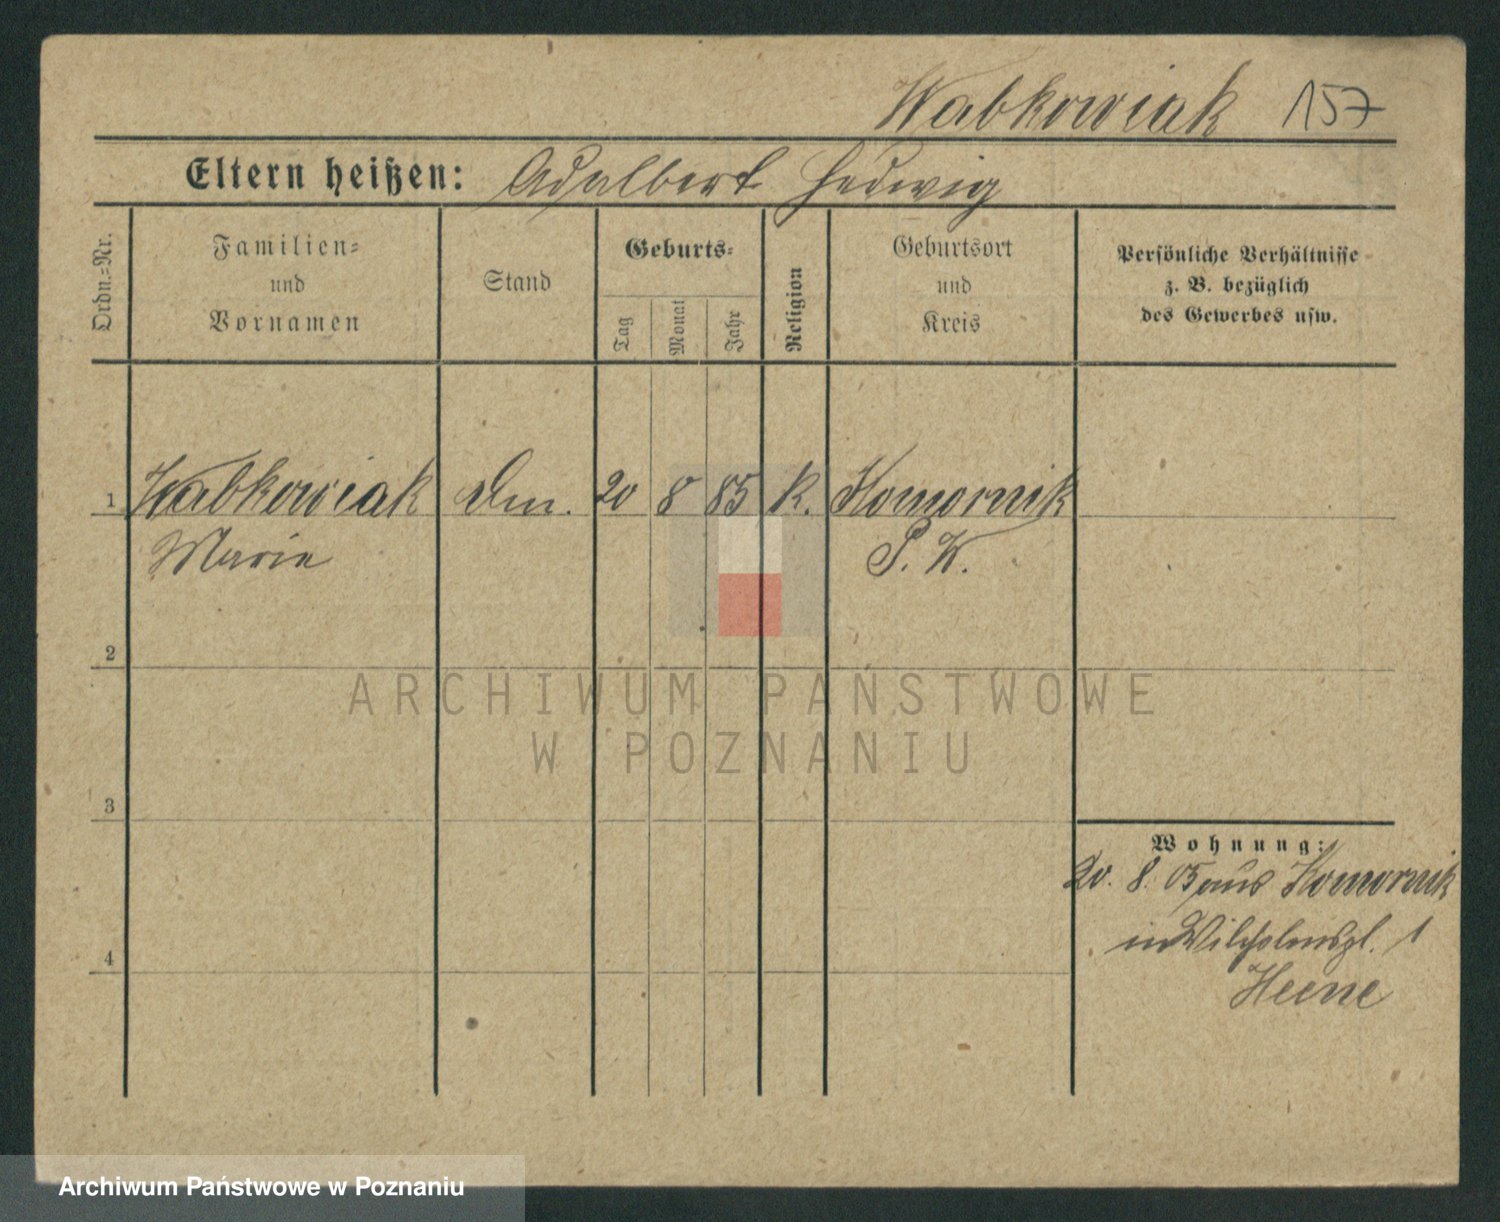 Wabkowiak 157
Eltern heißen: Adalbert Hedwig
Ordn.=Nr.
Familien=
und
Vornamen
Stand
Geburts=
Tag
Monat
Jahr
Religion
Geburtsort
und
Kreis
Persönliche Verhältnisse
z. B. bezüglich
des Gewerbes usw.
1 Wabkowiak Dm. 20 8 85 K. Komornik
Marie P. W.
2
3
4
Wohnung:
20. 8. 05 aus Komornik
in Wilhelmspl. 1
Heene
ARCHIWUM PAŃSTWOWE
W POZNANIU
Archiwum Państwowe w Poznaniu